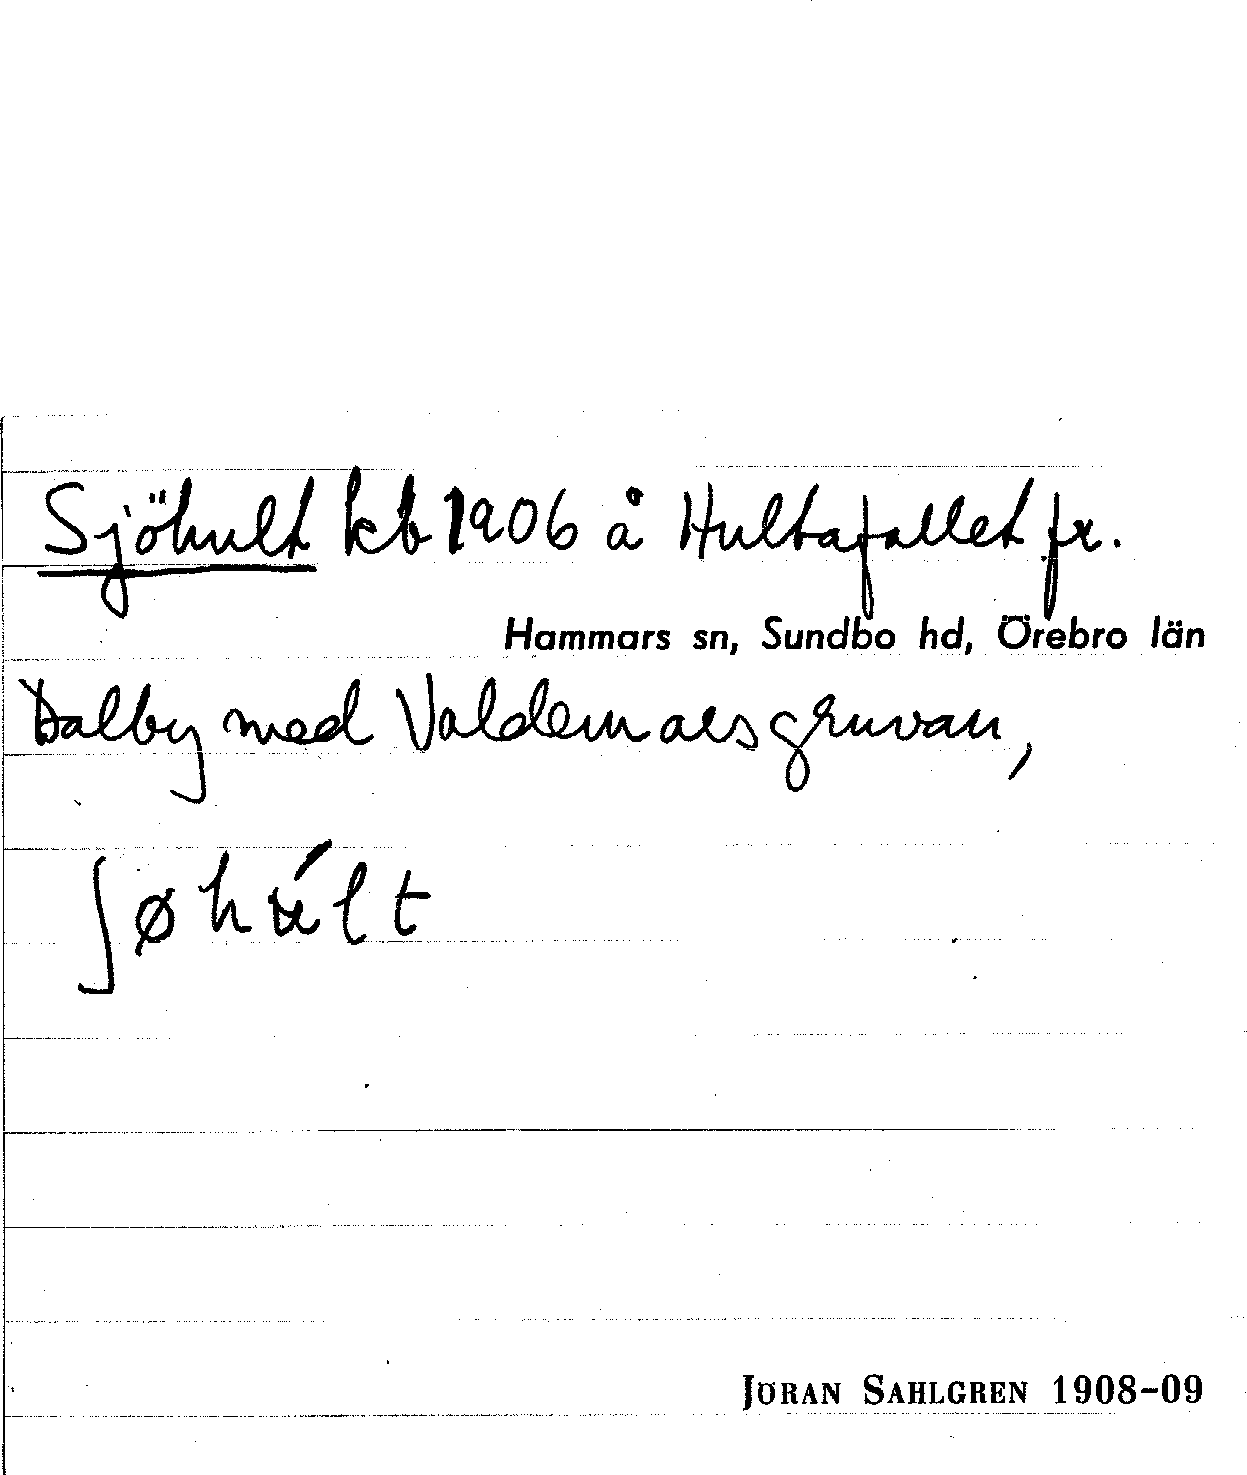 Sjöhult kb 1906 å Hultafallet fr.
Hammars sn, Sundbo hd, Örebro län
Dalby med Valdemarsgruvan,
ʃøhúlt
JÖRAN SAHLGREN 1908-09